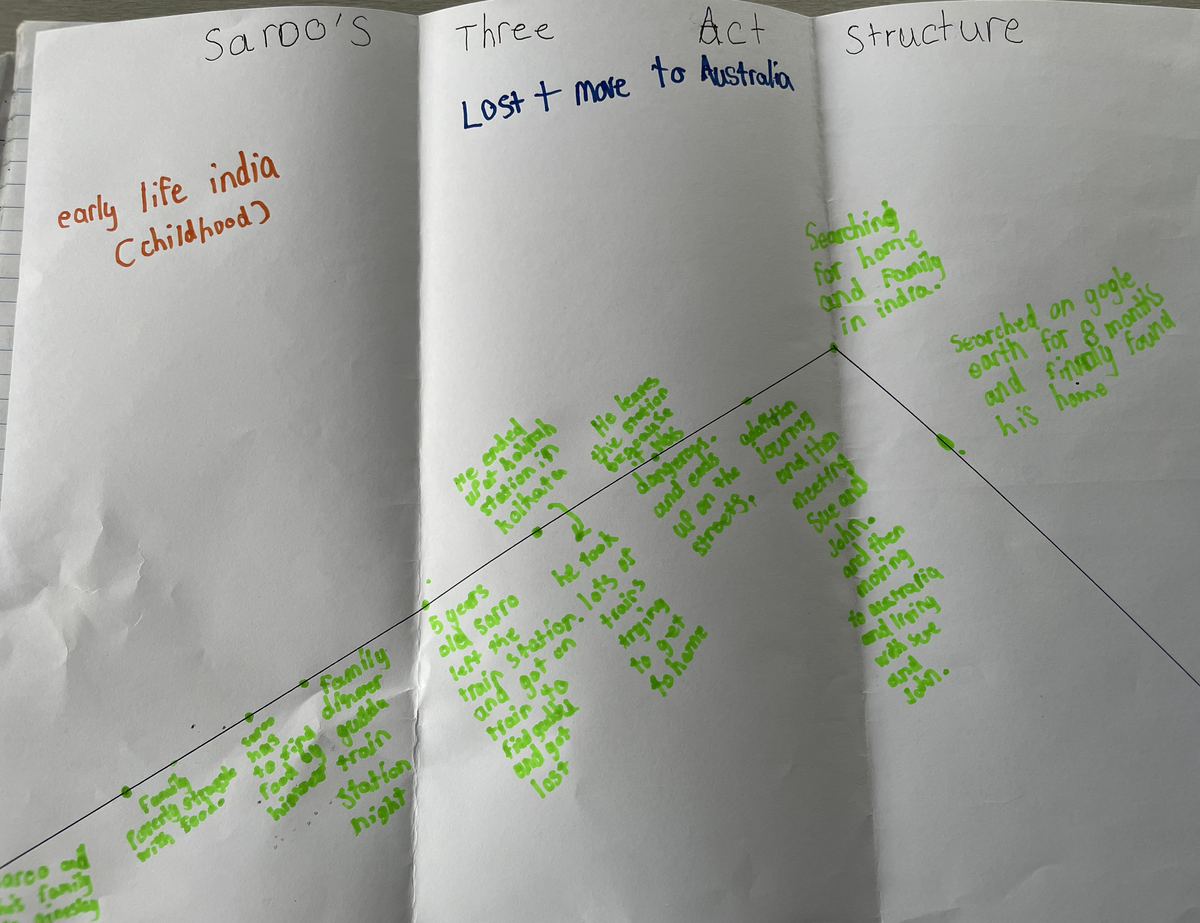 Saroo's Three Act Structure
Lost + move to Australia
early life india
(childhood)
and
family
Family
Poverty struggle
with food.
saroo
has
to find
food by
himself
family
dinner
guddu
train
station
night
5 years
old Sarro
left the
train station.
and got on
train to
find guddu
and got
lost
He ended
up at
station in
kolkata
he took
lots of
trains
trying
to get
to home
He leaves
the station
because
it was
dangerous.
and ends
up on the
streets.
Journy
and then
meeting
Sue and
John.
and then
moving
to australia
and living
with sue
and
John.
Searching
for home
and Family
in india.
Searched on gogle
earth for 8 months
and finally found
his home